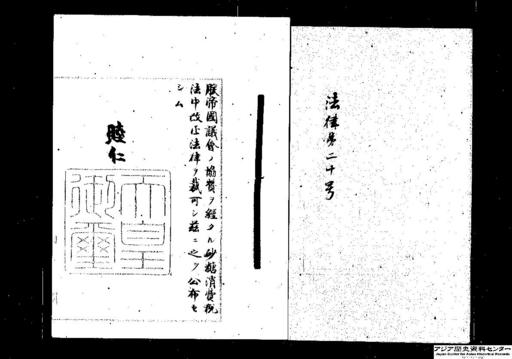 法律第二十号
朕帝國議會ノ協賛ヲ經タル砂糖消費税
法中改正法律ヲ裁可シ茲ニ之ヲ公布セ
シム
睦仁
天皇
御璽
アジア歴史資料センター
Japan Center for Asian Historical Records